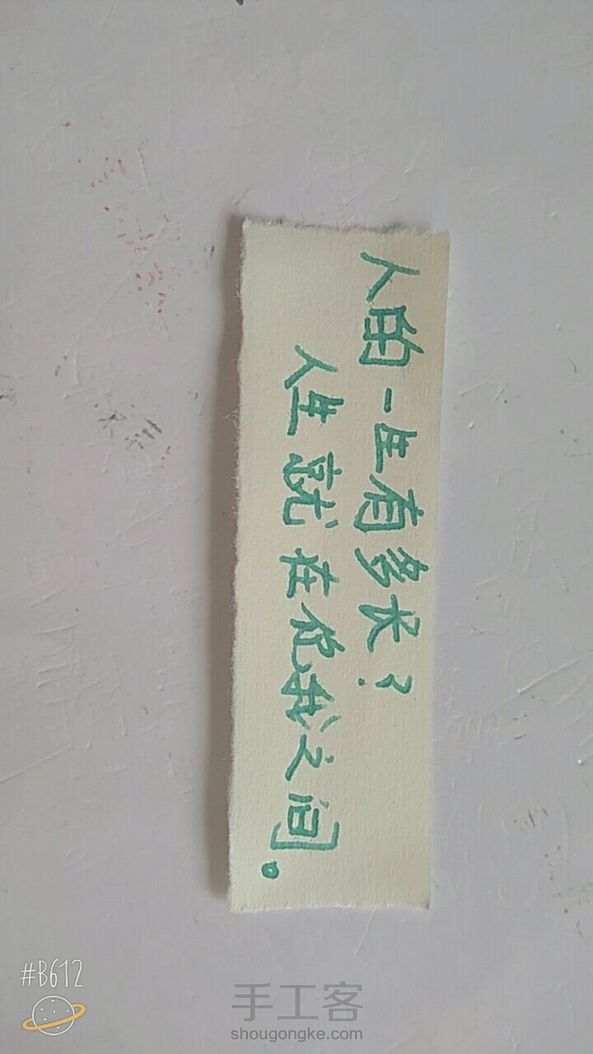 人的一生有多长?
人生就在你我之间。
#B612
手工客
shougongke.com